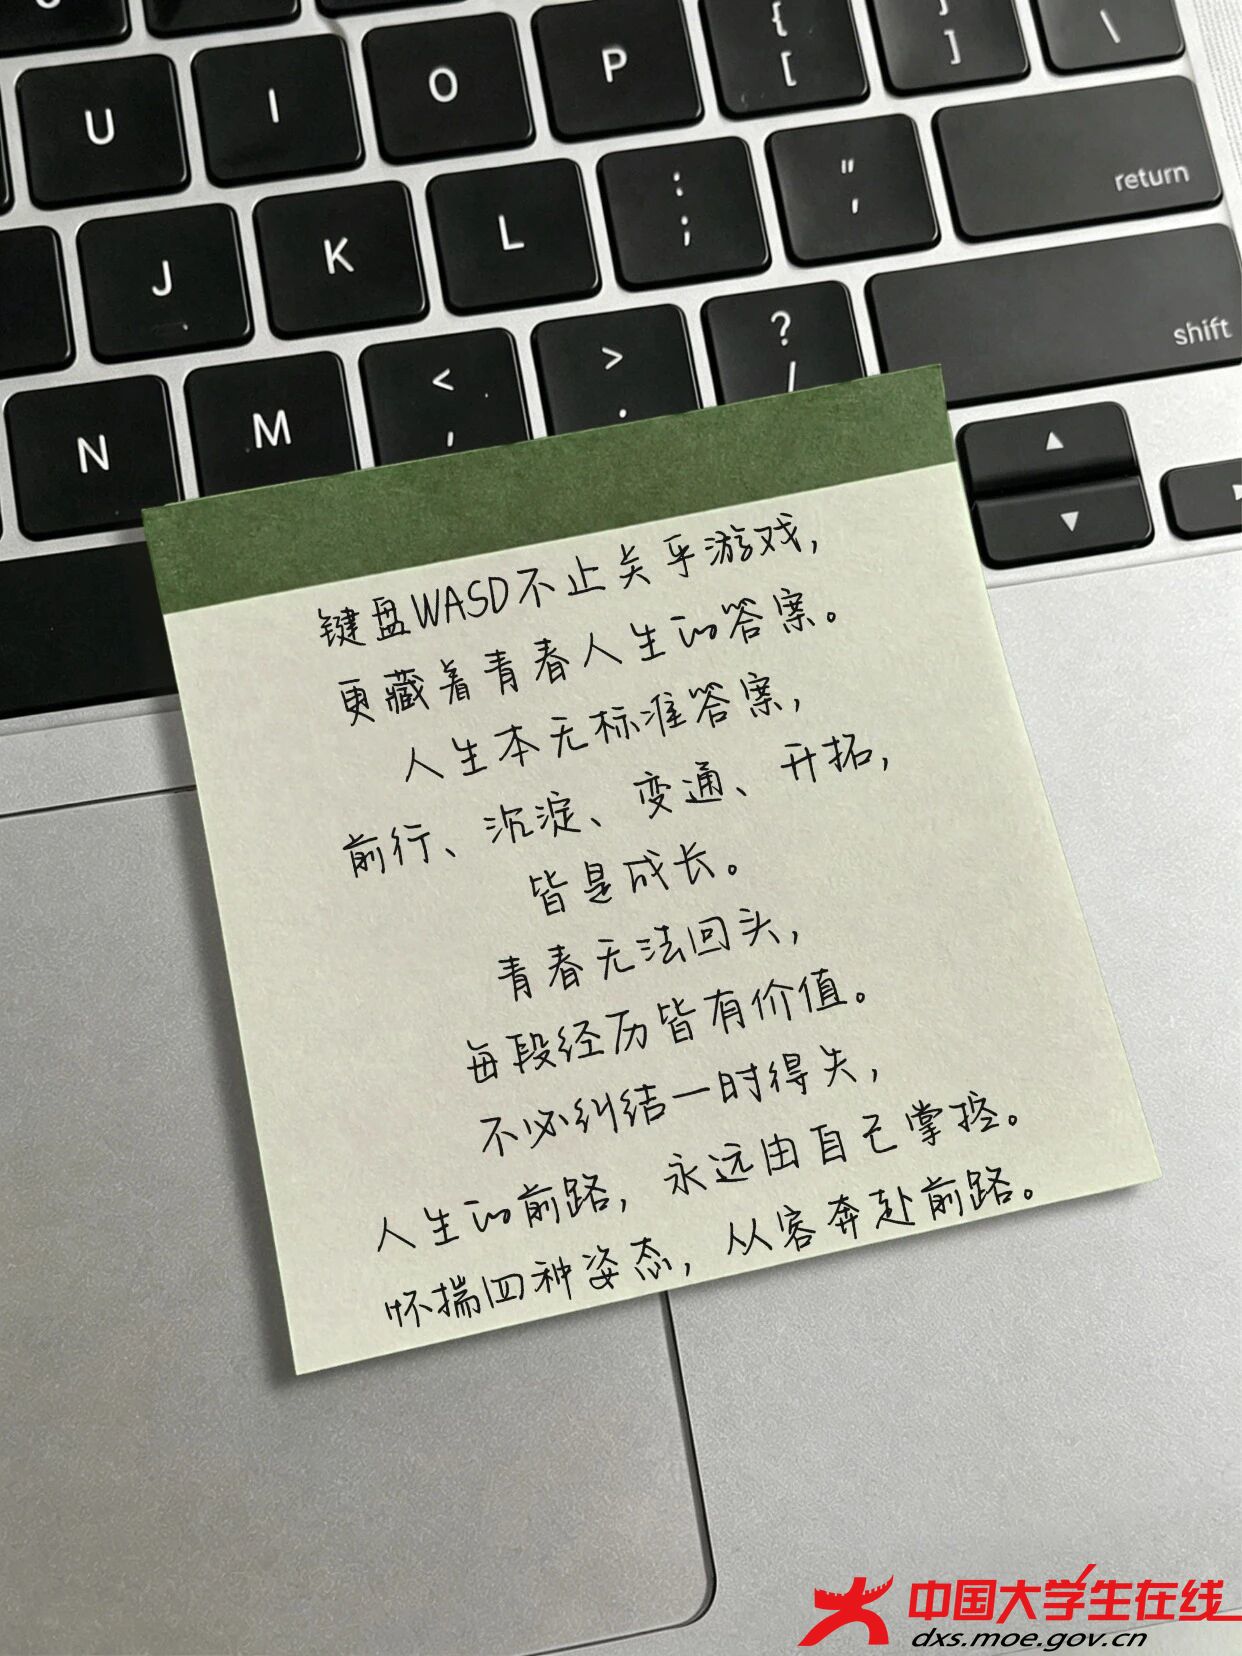 U I O P { [ } ] \
J K L : ; " ' return
N M < , > . ? / shift
键盘WASD不止关乎游戏，
更藏着青春人生的答案。
人生本无标准答案，
前行、沉淀、变通、开拓，
皆是成长。
青春无法回头，
每段经历皆有价值。
不必纠结一时得失，
人生的前路，永远由自己掌控。
怀揣四种姿态，从容奔赴前路。
中国大学生在线
dxs.moe.gov.cn